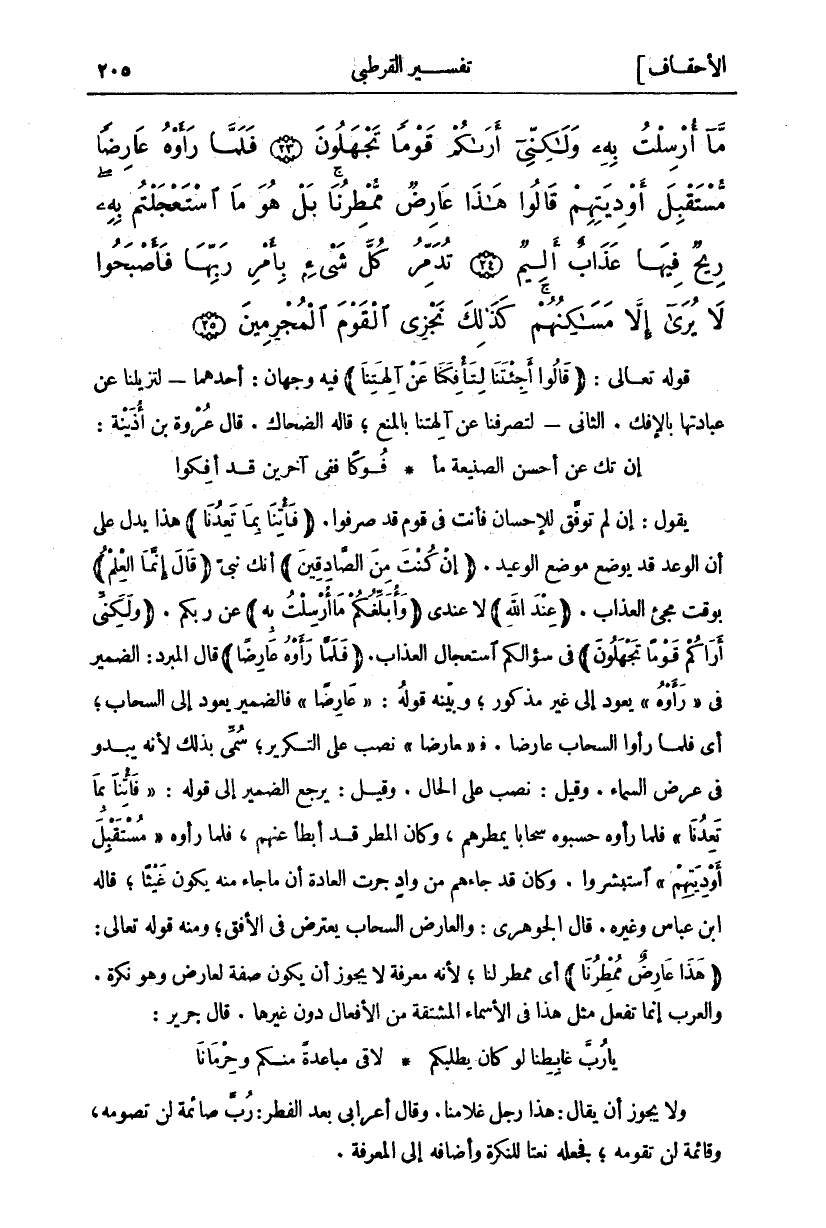 الأحقاف]
تفسير القرطبى
٢٠٥
مَّآ أُرْسِلْتُ بِهِۦ وَلَٰكِنِّىٓ أَرَىٰكُمْ قَوْمًا تَجْهَلُونَ ﴿٢٣﴾ فَلَمَّا رَأَوْهُ عَارِضًا
مُّسْتَقْبِلَ أَوْدِيَتِهِمْ قَالُوا هَٰذَا عَارِضٌ مُّمْطِرُنَا ۚ بَلْ هُوَ مَا ٱسْتَعْجَلْتُم بِهِۦ ۖ
رِيحٌ فِيهَا عَذَابٌ أَلِيمٌ ﴿٢٤﴾ تُدَمِّرُ كُلَّ شَىْءٍ بِأَمْرِ رَبِّهَا فَأَصْبَحُوا
لَا يُرَىٰٓ إِلَّا مَسَٰكِنُهُمْ ۚ كَذَٰلِكَ نَجْزِى ٱلْقَوْمَ ٱلْمُجْرِمِينَ ﴿٢٥﴾
قوله تعـالى : ﴿ قَالُوا أَجِئْتَنَا لِتَأْفِكَنَا عَنْ آلِهَتِنَا ﴾ فيه وجهان : أحدهما — لتزيلنا عن
عبادتها بالإفك . الثانى — لتصرفنا عن آلهتنا بالمنع ؛ قاله الضحاك . قال عُرْوة بن أُذَيْنة :
إن تك عن أحسن الصنيعة مأ * فُـوكًا ففى آخرين قـد أفِكوا
يقول : إن لم توفَّق للإحسان فأنت فى قوم قد صرفوا. ﴿ فَأْتِنَا بِمَا تَعِدُنَا ﴾ هذا يدل على
أن الوعد قد يوضع موضع الوعيد . ﴿ إِنْ كُنْتَ مِنَ الصَّادِقِينَ ﴾ أنك نبىّ ﴿ قَالَ إِنَّمَا الْعِلْمُ ﴾
بوقت مجىء العذاب . ﴿ عِنْدَ اللهِ ﴾ لا عندى ﴿ وَأُبَلِّغُكُمْ مَا أُرْسِلْتُ بِهِ ﴾ عن ربكم . ﴿ وَلَكِنِّى
أَرَاكُمْ قَوْمًا تَجْهَلُونَ ﴾ فى سؤالكم ٱستعجال العذاب. ﴿ فَلَمَّا رَأَوْهُ عَارِضًا ﴾ قال المبرد: الضمير
فى « رَأَوْهُ » يعود إلى غير مذكور ؛ وبيّنه قولهُ : « عَارِضًا » فالضمير يعود إلى السحاب ؛
أى فلمـا رأوا السحاب عارضا . فـ « عارضا » نصب على التـكرير؛ سُمِّىَ بذلك لأنه يبـدو
فى عرض السماء . وقيل : نصب على الحال . وقيـل : يرجع الضمير إلى قوله : « فَأْتِنَا بِمَا
تَعِدُنَا » فلما رأوه حسبوه سحابا يمطرهم ، وكان المطر قـد أبطأ عنهم ، فلما رأوه « مُسْتَقْبِلَ
أَوْدِيَتِهِمْ » ٱستبشروا . وكان قد جاءهم من وادٍ جرت العادة أن ما جاء منه يكون غَيْثًا ؛ قاله
ابن عباس وغيره. قال الجوهرى : والعارض السحاب يعترض فى الأفق؛ ومنه قوله تعالى:
﴿ هَذَا عَارِضٌ مُمْطِرُنَا ﴾ أى ممطر لنا ؛ لأنه معرفة لا يجوز أن يكون صفة لعارض وهو نكرة .
والعرب إنما تفعل مثل هذا فى الأسماء المشتقة من الأفعال دون غيرها . قال جرير :
يا رُبَّ غابِطِنا لو كان يطلبكم * لاقى مباعدةً منـكم وحِرْمَانَا
ولا يجوز أن يقال: هذا رجل غلامنا. وقال أعرابى بعد الفطر: رُبَّ صائمة لن تصومه،
وقائمة لن تقومه ؛ فجعله نعتا للنكرة وأضافه إلى المعرفة .